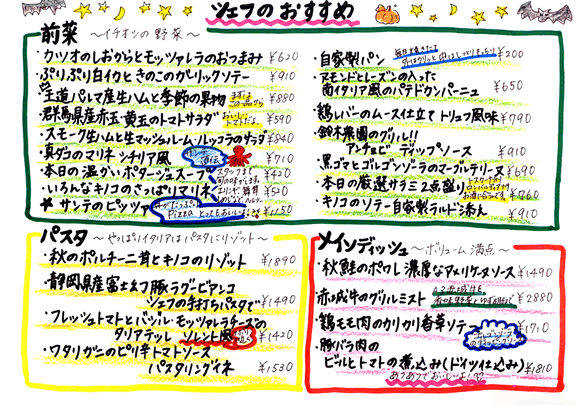 シェフのおすすめ
前菜 ～イチオシの野菜～
・カツオのしおからとモッツァレラのおつまみ ¥620
・ぷりぷり白イカときのこのガーリックソテー ¥910
・王道パルマ産生ハムと季節の果物 ¥880
・群馬県産赤玉・黄玉のトマトサラダ ¥590
・スモーク生ハムと生マッシュルーム・ルッコラのサラダ ¥840
・真ダコのマリネ シチリア風 ¥710
・本日の温かいポタージュスープ ¥420
・いろんなキノコのさっぱりマリネ ¥520
★サンテのピッツァ ¥1150
・自家製パン ¥200
・アーモンドとレーズンの入った
南イタリア風のパテドカンパーニュ ¥650
・鶏レバーのムース仕立て トリュフ風味 ¥790
・鈴木農園のグリル!!
アンチョビ ディップソース ¥910
・黒ゴマとゴルゴンゾーラのマーゴルテリーヌ ¥690
・本日の厳選サラミ2点盛り ¥760
・キノコのソテー自家製ラルド添え ¥910
パスタ ～やっぱりイタリアはパスタにリゾット～
・秋のポルチーニ茸とキノコのリゾット ¥1890
・静岡県産富士幻豚ラグービアンコ
シェフの手打ちパスタで ¥1490
・フレッシュトマトとバジル・モッツァレラチーズの
タリアテッレ ソレント風 ¥1420
・ワタリガニのピリ辛トマトソース
パスタリングイネ ¥1530
メインディッシュ ～ボリューム満点～
・秋鮭のポワレ 濃厚なアメリケーヌソース ¥1490
・赤城牛のグリルミスト ¥2880
・鶏モモ肉のカリカリ香草ソテー ¥1710
・豚バラ肉の
ビールとトマトの煮込み(ドイツ仕込み) ¥1810